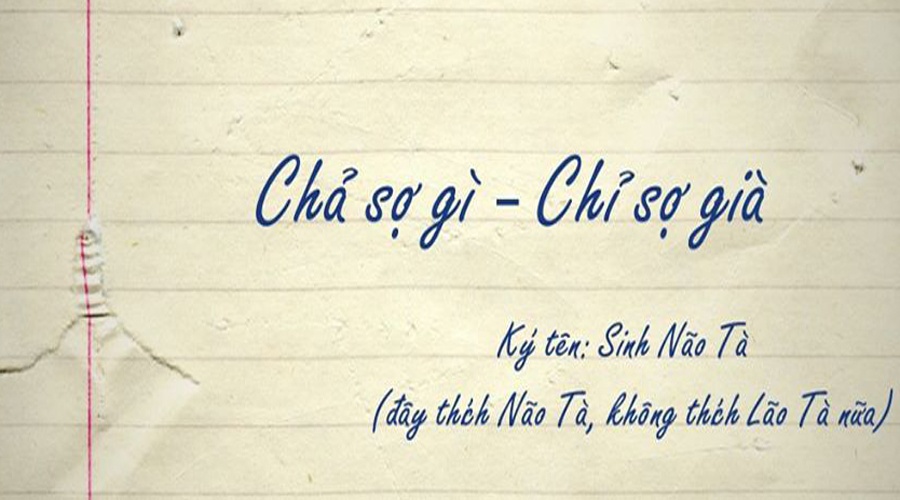 Chả sợ gì - Chỉ sợ già
Ký tên: Sinh Não Tà
(đây thích Não Tà, không thích Lão Tà nữa)